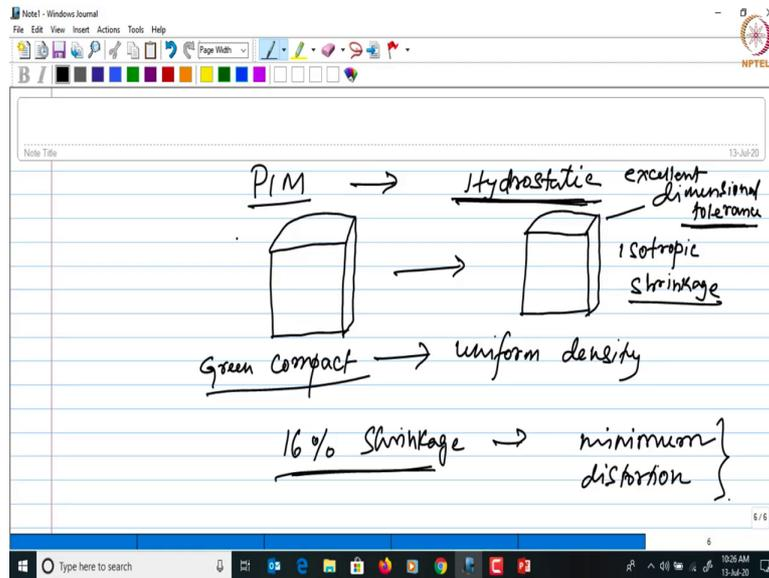 Note1 - Windows Journal
File Edit View Insert Actions Tools Help
Page Width
B I
NPTEL
Note Title
13-Jul-20
PIM → Hydrostatic
excellent
dimensional
tolerance
isotropic
shrinkage
Green Compact → uniform density
16% Shrinkage → minimum
distortion
6/6
6
Type here to search
10:26 AM
13-Jul-20